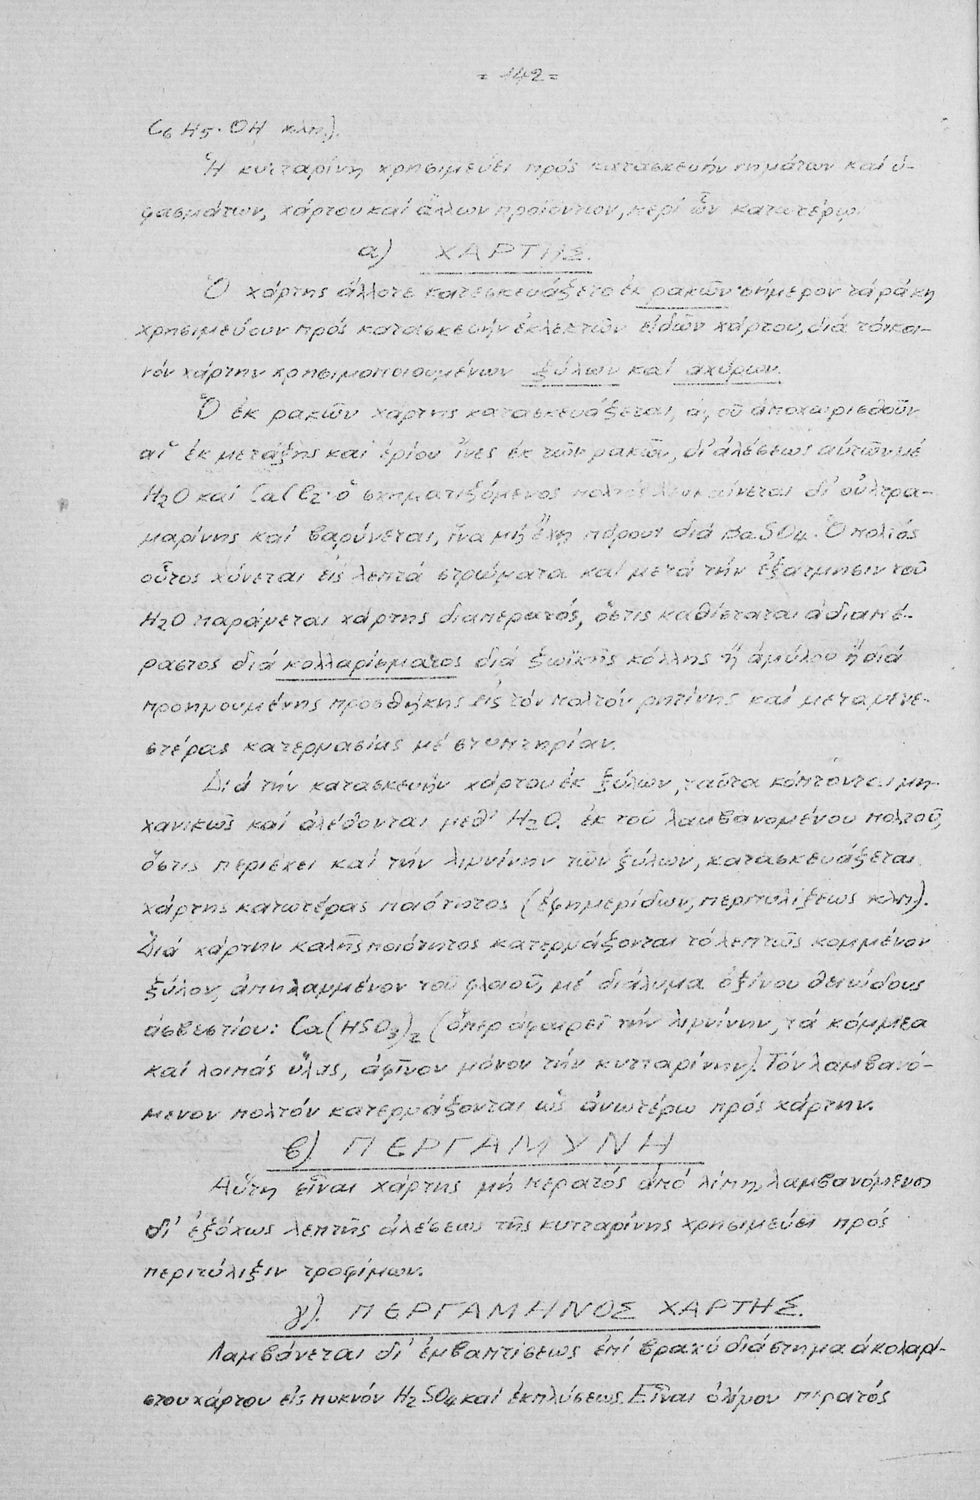 = 142 =
C6H5·OH κλπ).
Ἡ κυτταρίνη χρησιμεύει πρός κατασκευήν νημάτων καί ὑ-
φασμάτων, χάρτου καί ἄλλων προϊόντων, περί ὧν κατωτέρω.
α) ΧΑΡΤΗΣ.
Ὁ χάρτης ἄλλοτε κατεσκευάζετο ἐκ ρακῶν σήμερον τά ράκη
χρησιμεύουν πρός κατασκευήν ἐκλεκτῶν εἰδῶν χάρτου, διά τόν κοι-
νόν χάρτην χρησιμοποιουμένων ξύλων καί αχύρων.
Ὁ ἐκ ρακῶν χάρτης κατασκευάζεται, ἀφ' οὗ ἀποχωρισθοῦν
αἱ ἐκ μετάξης καί ἐρίου ἵνες ἐκ τῶν ρακῶν, δι' ἀλέσεως αὐτῶν μέ
H2O καί CaCl2· ὁ σχηματιζόμενος πολτός λευκαίνεται δι' οὐλτρα-
μαρίνης καί βαρύνεται, ἵνα μή ἔχῃ πόρους διά BaSO4. Ὁ πολτός
οὗτος χύνεται εἰς λεπτά στρώματα καί μετά τήν ἐξάτμησιν τοῦ
H2O παράγεται χάρτης διαπερατός, ὅστις καθίσταται ἀδιαπέ-
ραστος διά κολλαρίσματος διά ζωϊκῆς κόλλης ἤ ἀμύλου ἤ διά
προηγουμένης προσθήκης εἰς τόν πολτόν ρητίνης καί μεταγενε-
στέρας κατεργασίας μέ στυπτηρίαν.
Διά τήν κατασκευήν χάρτου ἐκ ξύλων, ταῦτα κόπτονται μη-
χανικῶς καί ἀλέθονται μεθ' H2O. ἐκ τοῦ λαμβανομένου πολτοῦ,
ὅστις περιέχει καί τήν λιγνίνην τῶν ξύλων, κατασκευάζεται
χάρτης κατωτέρας ποιότητος (ἐφημερίδων, περιτυλίξεως κλπ).
Διά χάρτην καλῆς ποιότητος κατεργάζονται τό λεπτῶς κομμένον
ξύλον, ἀπηλαγμένον τοῦ φλοιοῦ, μέ διάλυμα ὀξίνου θειώδους
ἀσβεστίου: Ca(HSO3)2 (ὅπερ ἀφαιρεῖ τήν λιγνίνην, τά κόμμεα
καί λοιπάς ὕλας, ἀφῖνον μόνον τήν κυτταρίνην). Τόν λαμβανό-
μενον πολτόν κατεργάζονται ὡς ἀνωτέρω πρός χάρτην.
β) ΠΕΡΓΑΜΥΝΗ
Αὕτη εἶναι χάρτης μή περατός ἀπό λίπη, λαμβανόμενος
δι' ἐξόχως λεπτῆς ἀλέσεως τῆς κυτταρίνης χρησιμεύει πρός
περιτύλιξιν τροφίμων.
γ) ΠΕΡΓΑΜΗΝΟΣ ΧΑΡΤΗΣ.
Λαμβάνεται δι' ἐμβαπτίσεως ἐπί βραχύ διάστημα ἀκολαρί-
στου χάρτου εἰς πυκνόν H2SO4 καί ἐκπλύσεως. Εἶναι ὀλίγον περατός